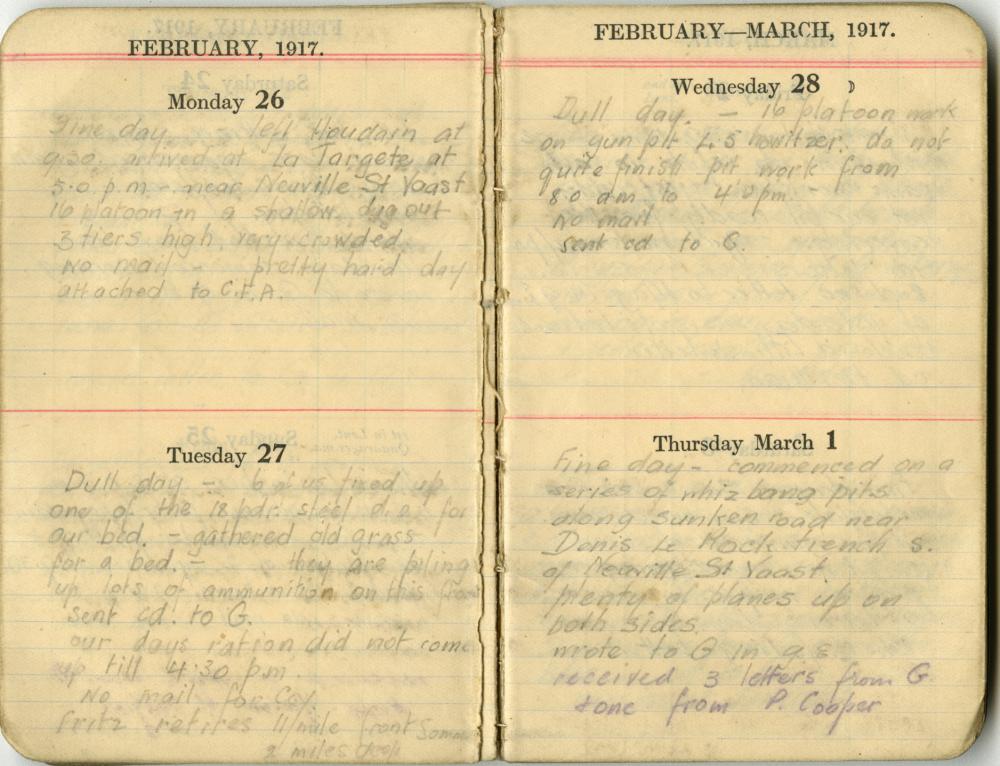 FEBRUARY, 1917.
Monday 26
Fine day. - left Houdain at
9:30. arrived at La Targete at
5.0 p.m - near Neuville St Vaast
16 platoon in a shallow dug out
3 tiers high, very crowded.
No mail - pretty hard day
attached to C.F.A.
Tuesday 27
Dull day - 6 of us fixed up
one of the 18 pdr. steel d.o. for
our bed. - gathered old grass
for a bed. - they are piling
up lots of ammunition on this front
sent cd. to G.
our days ration did not come
up till 4.30 p.m.
No mail for Coy.
Fritz retires 11 mile front Somme
2 miles deep
FEBRUARY—MARCH, 1917.
Wednesday 28
Dull day. - 16 platoon work
on gun pit 4.5 howitzer. do not
quite finish pit work from
8 0 am to 4 0 pm -
no mail
sent cd to G.
Thursday March 1
Fine day - commenced on a
series of whiz bang pits
along sunken road near
Denis Le Rock trench s.
of Neuville St Vaast.
plenty of planes up on
both sides.
wrote to G in
received 3 letters from G
+ one from P. Cooper